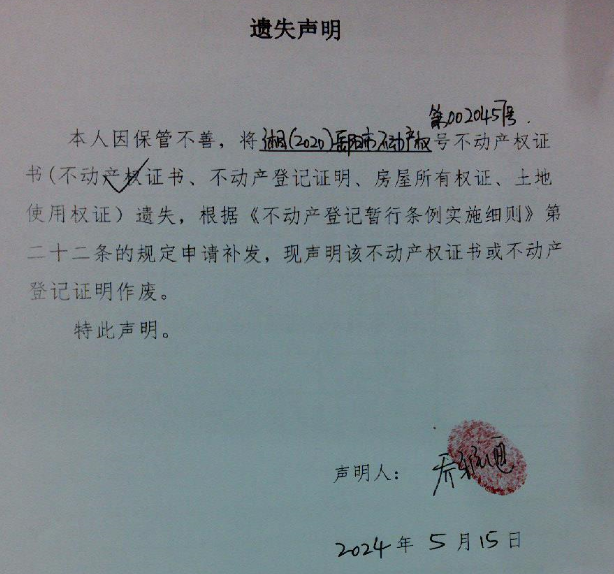 遗失声明
第0020457号.
本人因保管不善，将湘(2020)岳阳市不动产权号不动产权证
书(不动产权证书、不动产登记证明、房屋所有权证、土地
使用权证）遗失，根据《不动产登记暂行条例实施细则》第
二十二条的规定申请补发，现声明该不动产权证书或不动产
登记证明作废。
特此声明。
声明人：
2024年5月15日